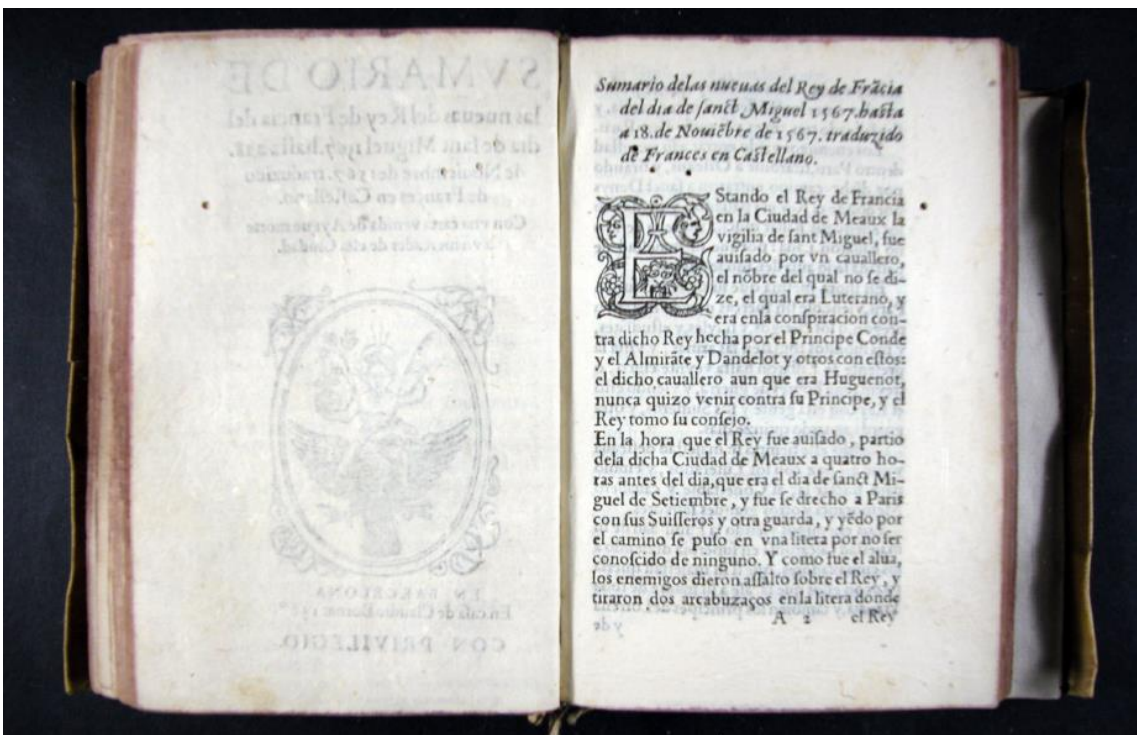 Sumario delas nueuas del Rey de Frãcia
del dia de sanct Miguel 1567. hasta
a 18. de Nouiẽbre de 1567. traduzido
de Frances en Castellano.
EStando el Rey de Francia
en la Ciudad de Meaux la
vigilia de sant Miguel, fue
auisado por vn cauallero,
el nõbre del qual no se di-
ze, el qual era Luterano, y
era enla conspiracion con-
tra dicho Rey hecha por el Principe Conde
y el Almirãte y Dandelot y otros con estos:
el dicho cauallero aun que era Huguenot,
nunca quizo venir contra su Principe, y el
Rey tomo su consejo.
En la hora que el Rey fue auisado, partio
dela dicha Ciudad de Meaux a quatro ho-
ras antes del dia, que era el dia de sanct Mi-
guel de Setiembre, y fue se drecho a Paris
con sus Suisseros y otra guarda, y yẽdo por
el camino se puso en vna litera por no ser
conoscido de ninguno. Y como fue el alua,
los enemigos dieron assalto sobre el Rey, y
tiraron dos arcabuzaços enla litera donde
A 2 el Rey